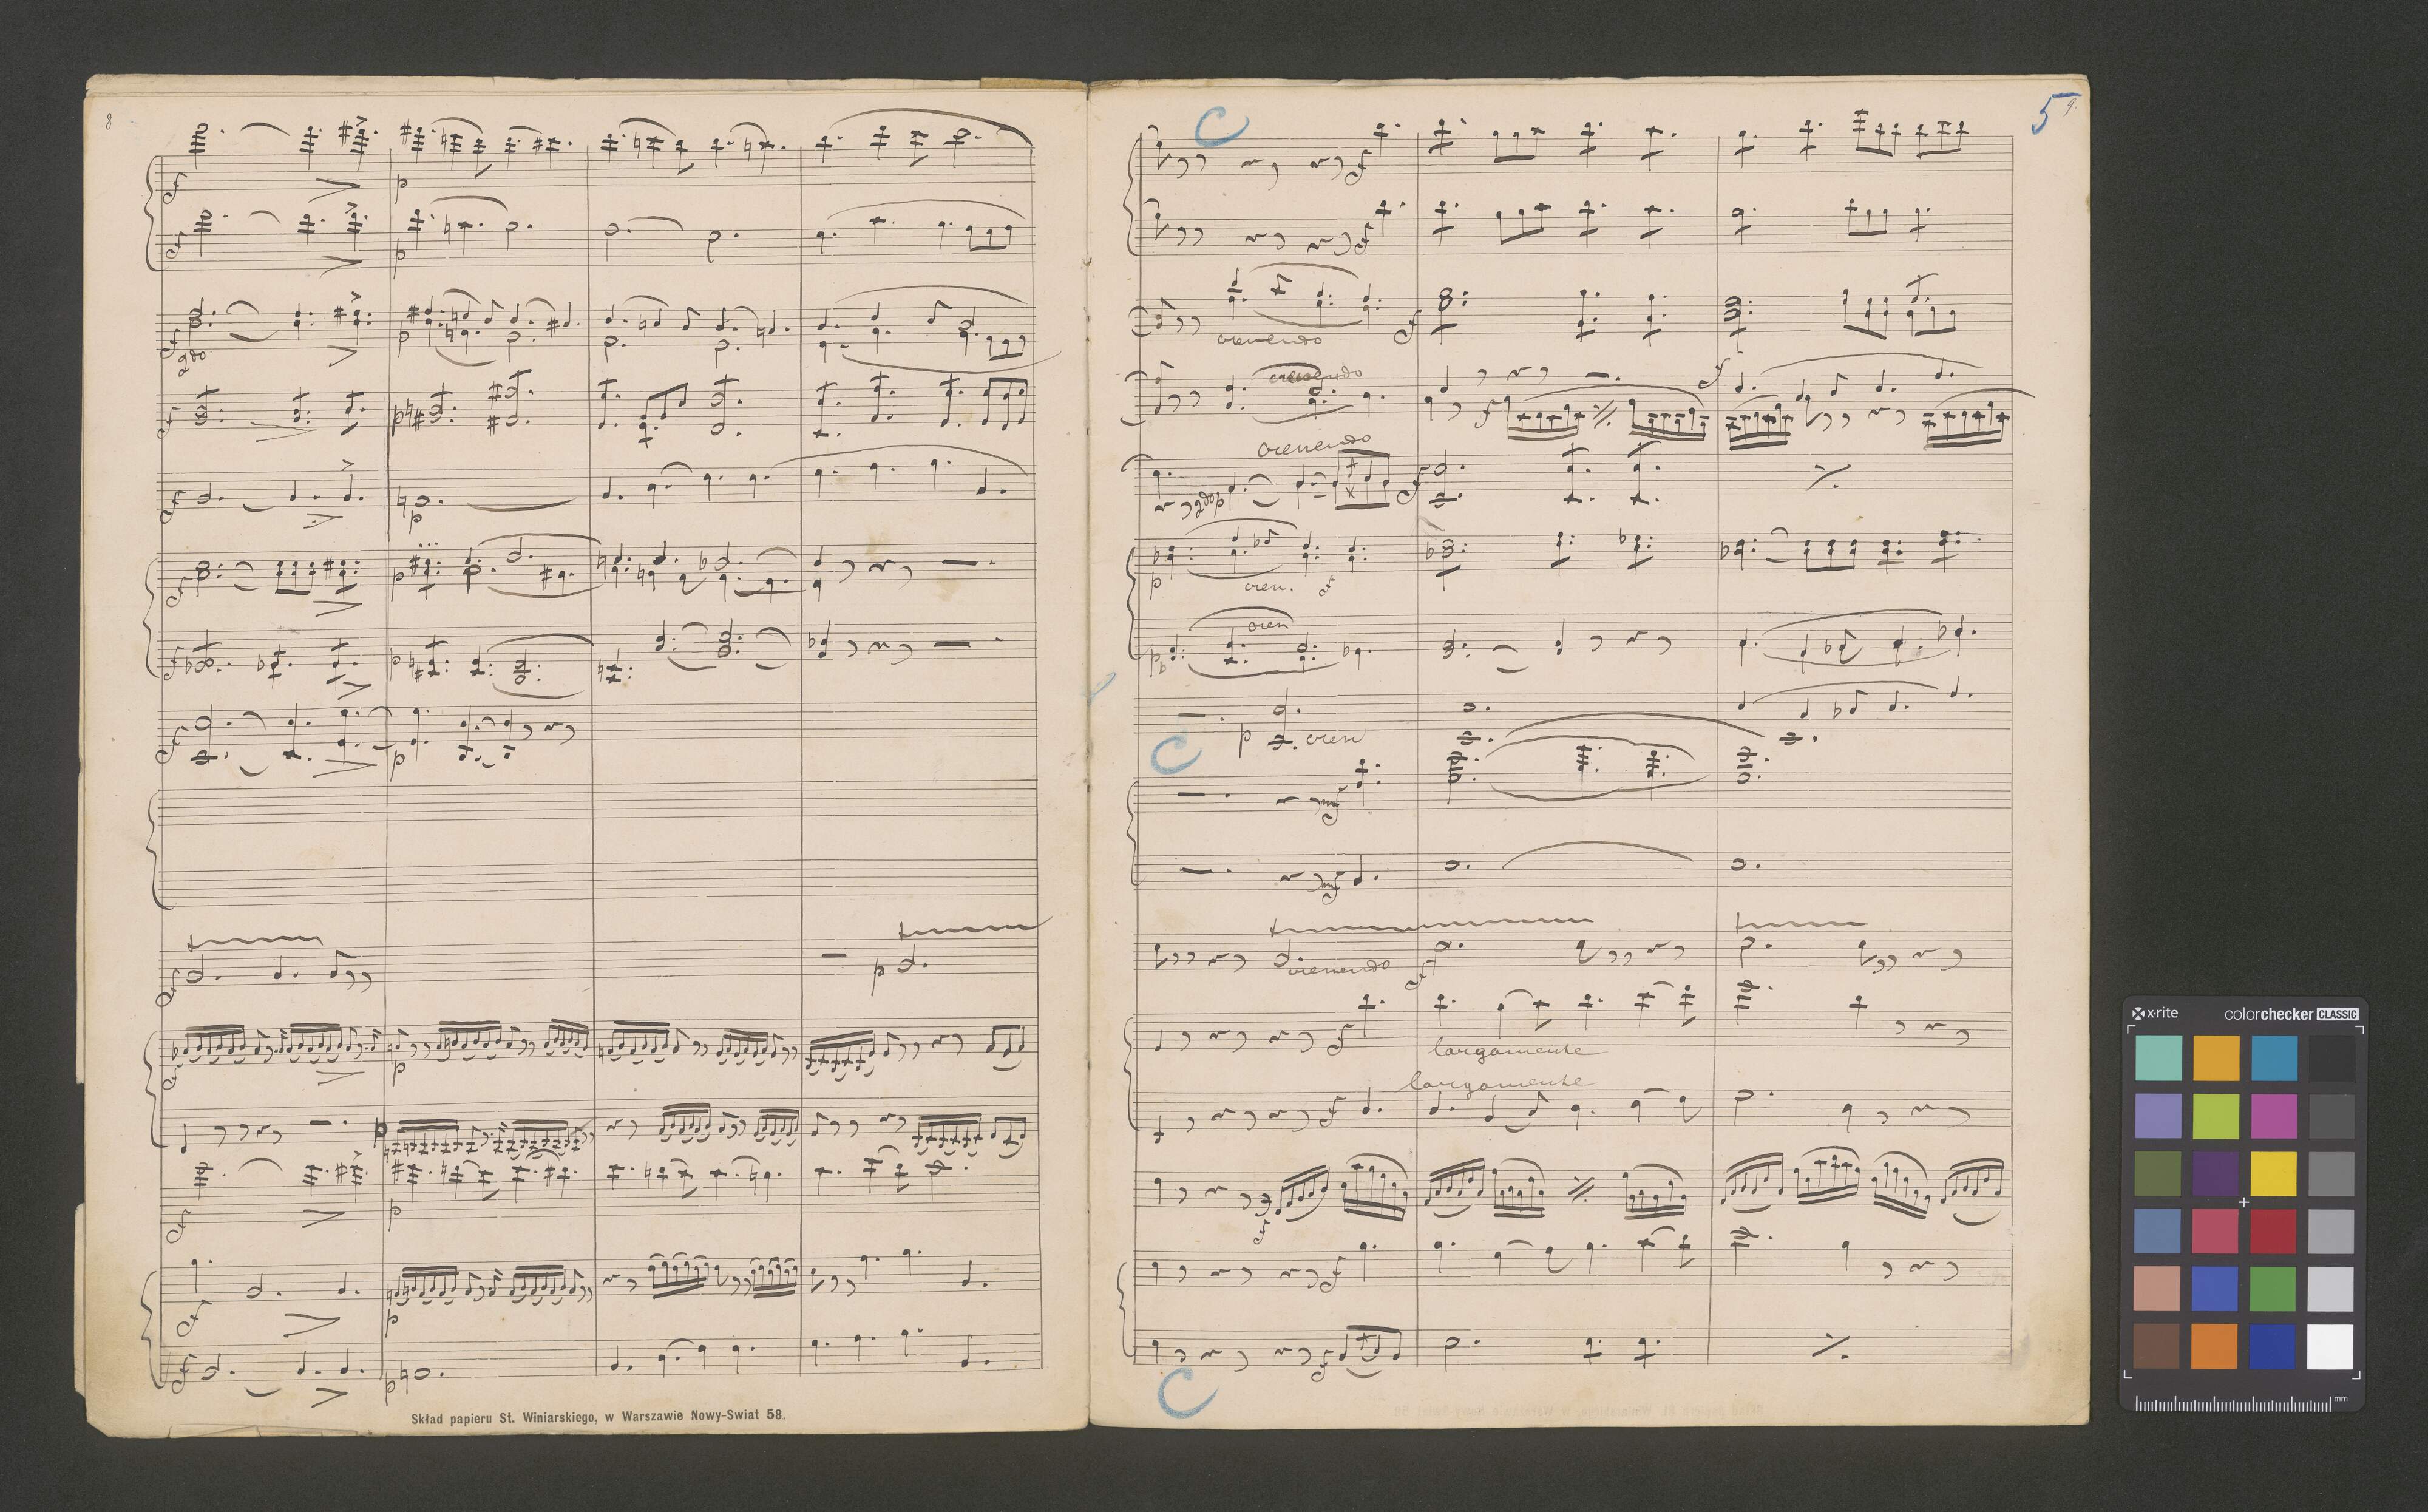 8
f
f
f
2do.
p
f
p
f
p
f
p
f
p
f
p
f
p
f
p
f
p
p
f
p
f
p
f
p
Skład papieru St. Winiarskiego, w Warszawie Nowy-Swiat 58.
5 9.
C
f
f
crescendo
f
crescendo
f
f
crescendo
f
p
cresc.
f
cresc
p
p
cresc
C
mf
mf
crescendo
f
f
largamente
largamente
f
f
f
f
C
x-rite
colorchecker CLASSIC
mm